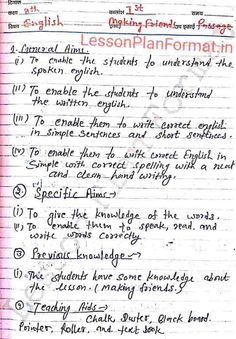 दिनांक
कक्षा 8th कालांश 1st
विषय English Making Friends इकाई Passage
LessonPlanFormat.in
1. General Aims.
(i) To enable the students to understand the spoken english.
(ii) To enable the students to understand the written english.
(iii) To enable them to write correct english in simple sentences and short sentences.
(iv) To enable them to write correct English in simple with correct spelling with a neat and clean hand writing.
② Specific Aims :-
(i) To give the knowledge of the words.
(ii) To enable them to speak, read, and write words correctly
③ Previous knowledge :-
(i) The students have some knowledge about the lesson. (making friends.)
④ Teaching Aids :-
Chalk, Duster, Black board, Pointer, Roller, and text book.